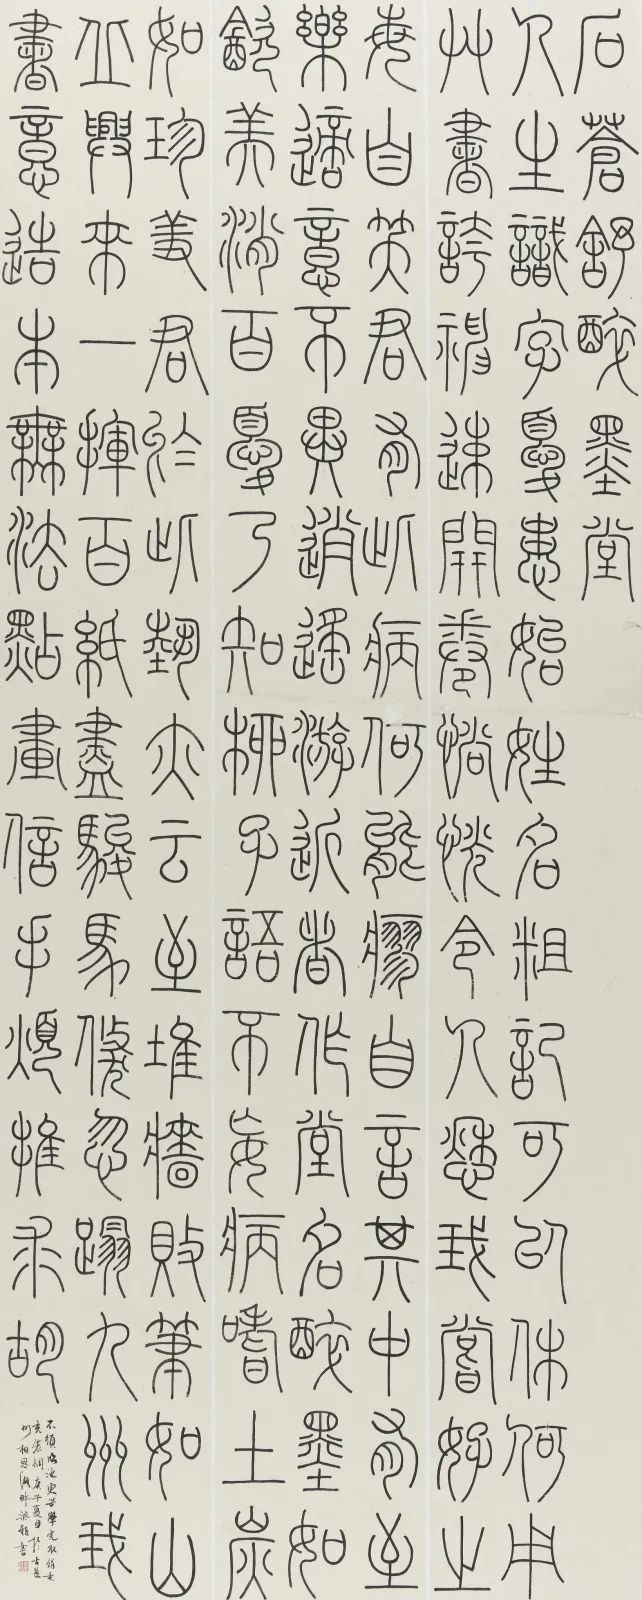 石蒼舒醉墨堂
人生識字憂患始姓名粗記可以休何用
艸書誇神速開卷惝怳令人愁我嘗好之
每自笑君有此病何能瘳自言其中有至
樂適意不異逍遙游近者作堂名醉墨如
飲美消百憂了知柳子語不妄病嗜土炭
如珍羞君於此藝亦云至堆牆敗筆如山
丘興來一揮百紙盡駿馬倏忽踏九州我
書意造本無法點畫信手煩推求胡
不須臨池更苦學完取絹素
充衾裯庚子夏日於古邕
州相思湖畔梁書